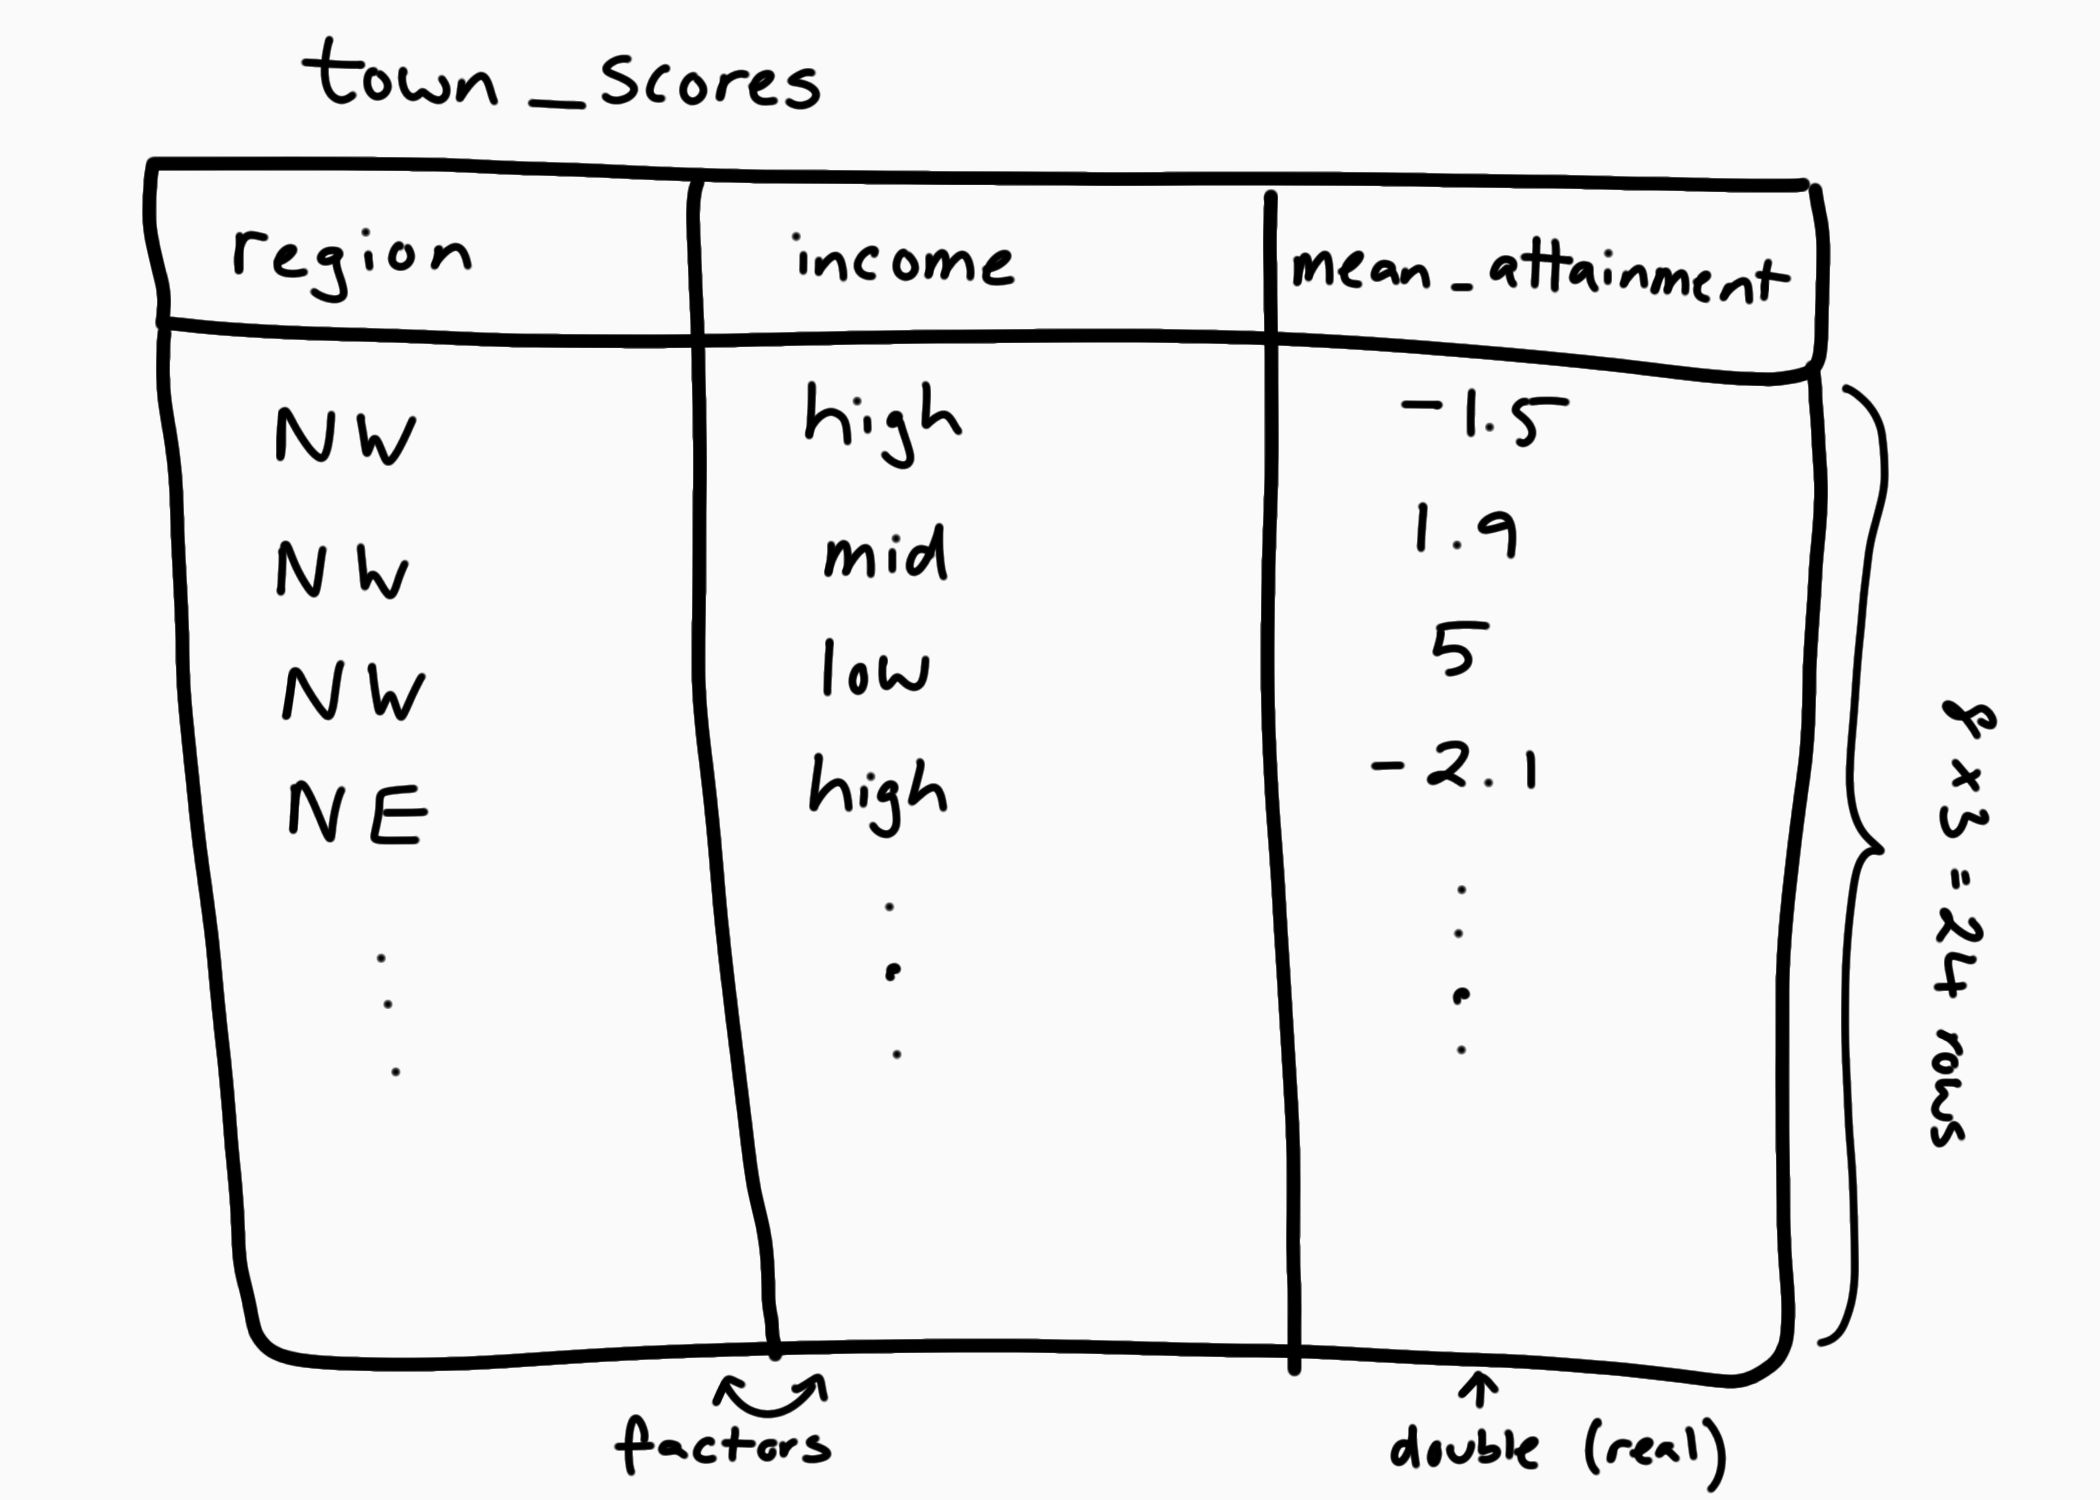 town_scores
region income mean_attainment
NW high -1.5
NW mid 1.9
NW low 5
NE high -2.1
8 x 3 = 24 rows
factors double (real)